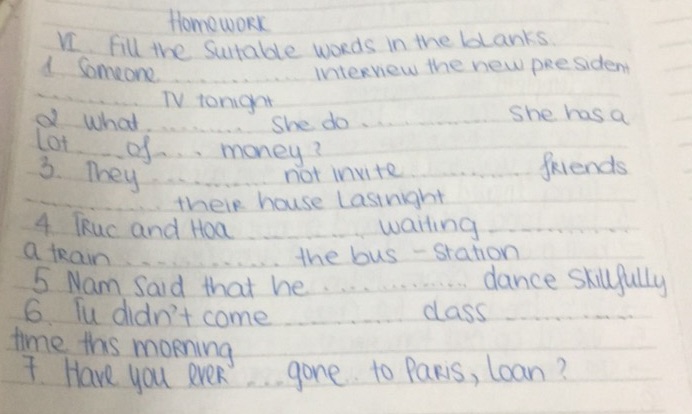 Homework
VI Fill the suitable words in the blanks.
1 Someone ............... interview the new president
............... TV tonight
2 What ......... she do ............ she has a
lot ... of ... money?
3. They ............ not invite ............ friends
............... their house lastnight
4. Truc and Hoa ............ waiting ............
a train ............... the bus - station
5 Nam said that he ............... dance skillfully
6. Tu didn't come ............... class ............
time this morning
7. Have you ever ... gone .. to Paris, Loan?